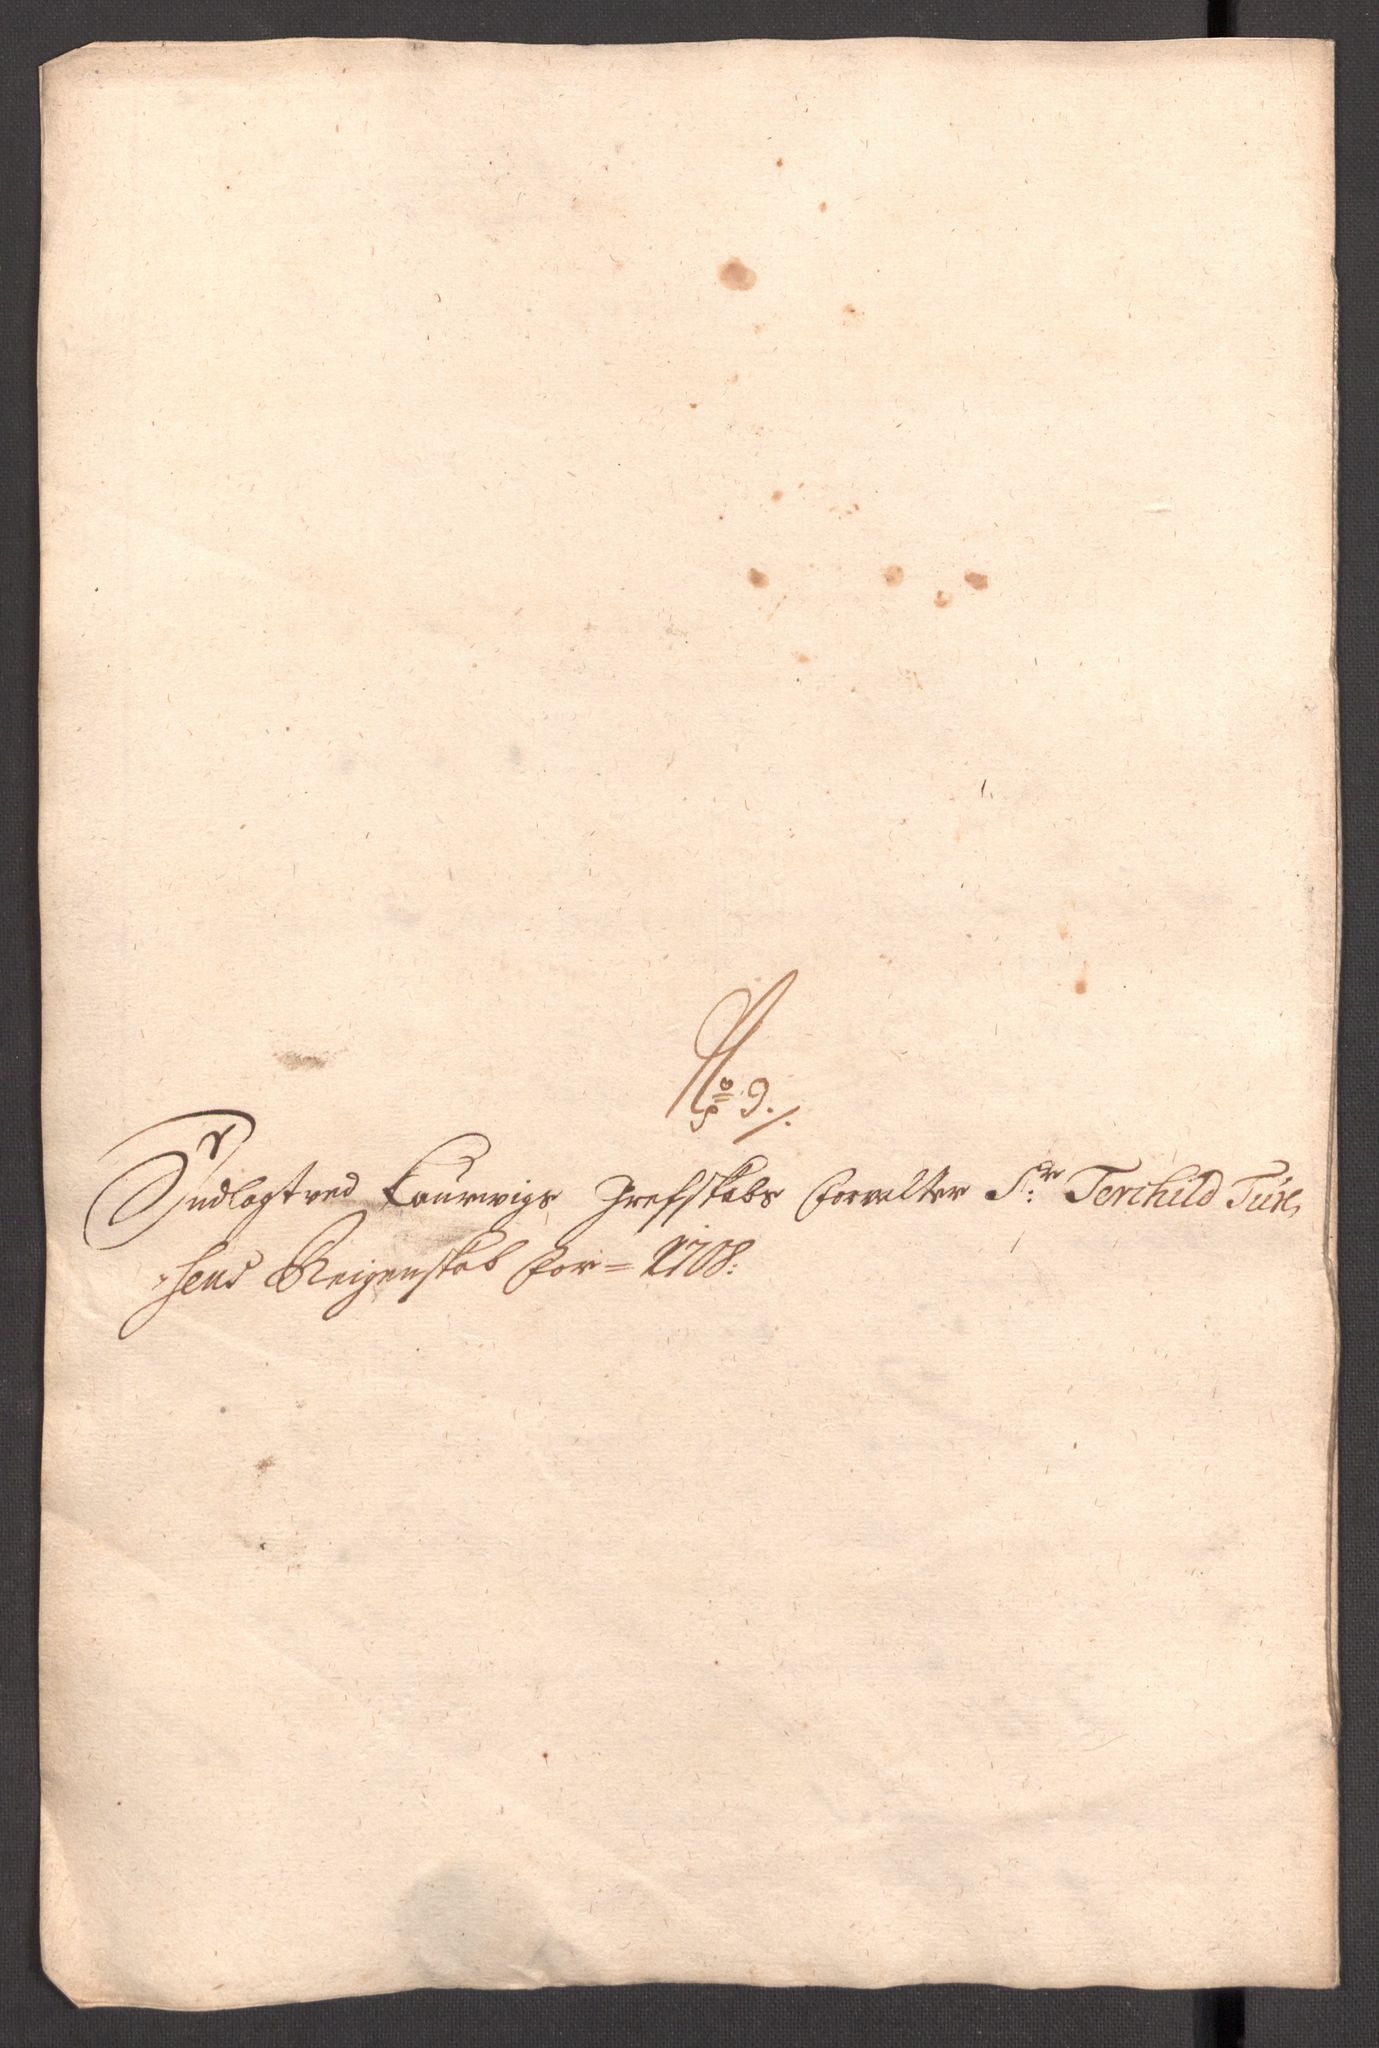 No 9./.
Indlagt ved Laurwigs Grefskabs Forvalter Sr: Terchild Tüxe,
-sens Reigenskab for = 1708: